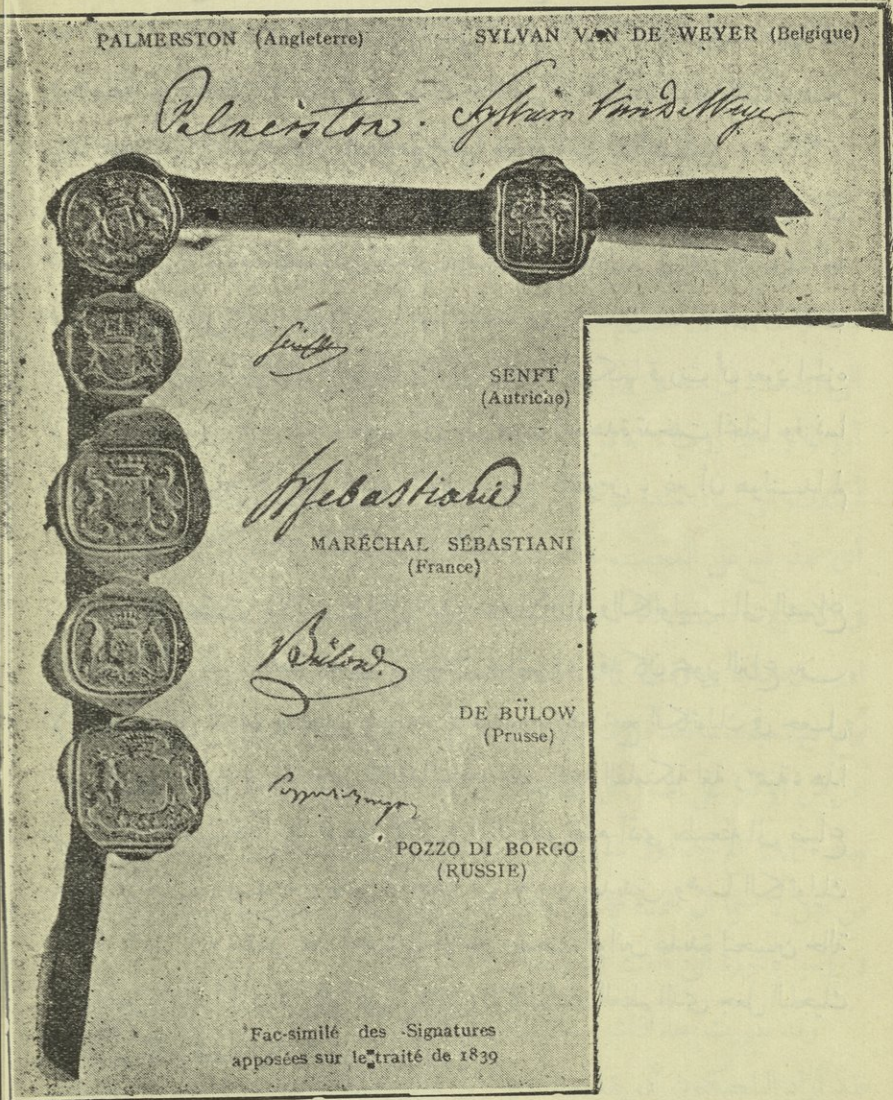 PALMERSTON (Angleterre)
SYLVAN VAN DE WEYER (Belgique)
Palmerston.
Sylvain Van De Weyer
Senfft
SENFT
(Autriche)
HSebastiani
MARÉCHAL SÉBASTIANI
(France)
Bülow.
DE BÜLOW
(Prusse)
Pozzo di Borgo
POZZO DI BORGO
(RUSSIE)
Fac-similé des Signatures
apposées sur le traité de 1839